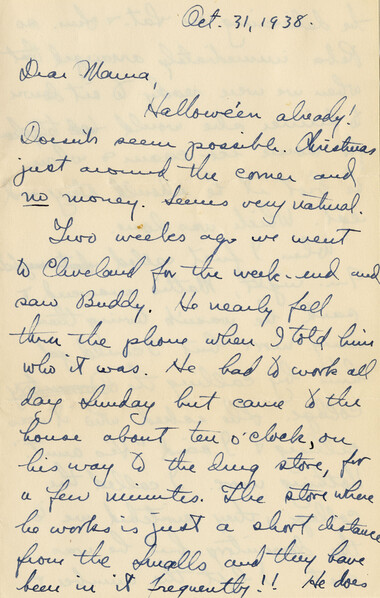 Oct. 31, 1938.
Dear Mama,
Hallowe'en already!
Doesn't seem possible. Christmas
just around the corner and
no money. Seems very natural.
Two weeks ago we went
to Cleveland for the week-end and
saw Buddy. He nearly fell
thru the phone when I told him
who it was. He had to work all
day Sunday but came to the
house about ten o'clock, on
his way to the drug store, for
a few minutes. The store where
he works is just a short distance
from the Smalls and they have
been in it frequently!! He does